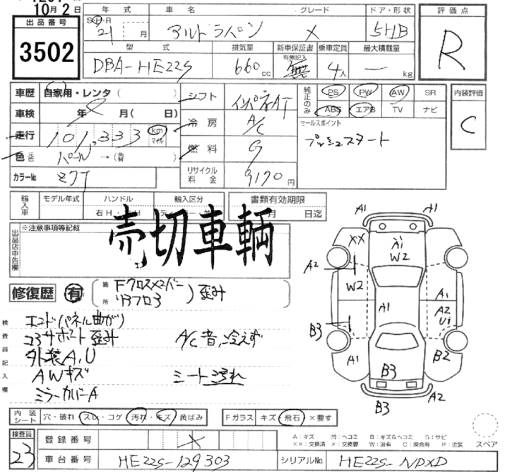 10月2日
出品番号
3502
年式 車名 グレード ドア・形状
21 年 月 アルトラパン X 5HB
評価点
R
型式 排気量 新車保証書 乗車定員 最大積載量
有無記入
DBA-HE22S 660 cc 無 4人 ― kg
車歴 自家用・レンタ( )
シフト インパネAT
純正のみ
PS PW AW SR
ABS エアB TV ナビ
内装評価
C
車検 年 月( 日)
冷房 A/C
セールスポイント
プッシュスタート
走行 101,333 km マイル
燃料 G
色 パール
カラーNo Z7T
リサイクル料金 9170円
輸入車 モデル年式 ハンドル 輸入区分 書類有効期限
右H 月 日迄
出品店申告欄
※注意事項等記載
売切車輌
修復歴 有
箇所
Fクロスメンバー
リヤフロア
歪み
検査員記入欄
エンドパネル曲がり
コアサポート歪み
A/C音、冷えず
外装A,U
AWキズ
シート汚れ
ミラーカバーA
A1
XX
A1
W2
A1
A2
W2
A1
A1
A2
U1
B3
B2
B3
B3
A2
スペア
内装シート 穴・破れ スレ・コゲ 汚れ・キズ 黄ばみ Fガラス キズ・飛石 ×要す
検査員
23
登録番号
車台番号 HE22S-129303 シリアルNo HE22S-NDXD